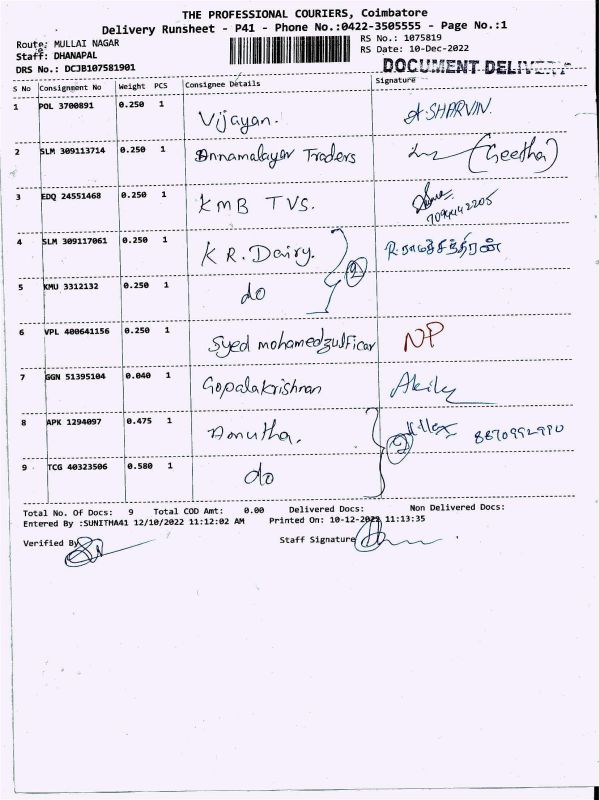 THE PROFESSIONAL COURIERS, Coimbatore
Delivery Runsheet - P41 - Phone No.:0422-3505555 - Page No.:1
Route: MULLAI NAGAR
RS No.: 1075819
Staff: DHANAPAL
RS Date: 10-Dec-2022
DRS No.: DCJB107581901
DOCUMENT DELIVERY
S No Consignment No Weight PCS Consignee Details Signature
1 POL 3700891 0.250 1 Vijayan. SHARVIN
2 SLM 309113714 0.250 1 Annamalayar Traders (Geetha)
3 EDQ 24551468 0.250 1 KMB TVS.
4 SLM 309117061 0.250 1 K R. Dairy. R. ராமச்சந்திரன்
5 KMU 3312132 0.250 1 do 2
6 VPL 400641156 0.250 1 Syed mohamedzulficar NP
7 GGN 51395104 0.040 1 Gopalakrishnan
8 APK 1294097 0.475 1 Amutha. 2 8870992990
9 TCG 40323506 0.580 1 do
Total No. Of Docs: 9 Total COD Amt: 0.00 Delivered Docs: Non Delivered Docs:
Entered By :SUNITHA41 12/10/2022 11:12:02 AM Printed On: 10-12-2022 11:13:35
Verified By
Staff Signature